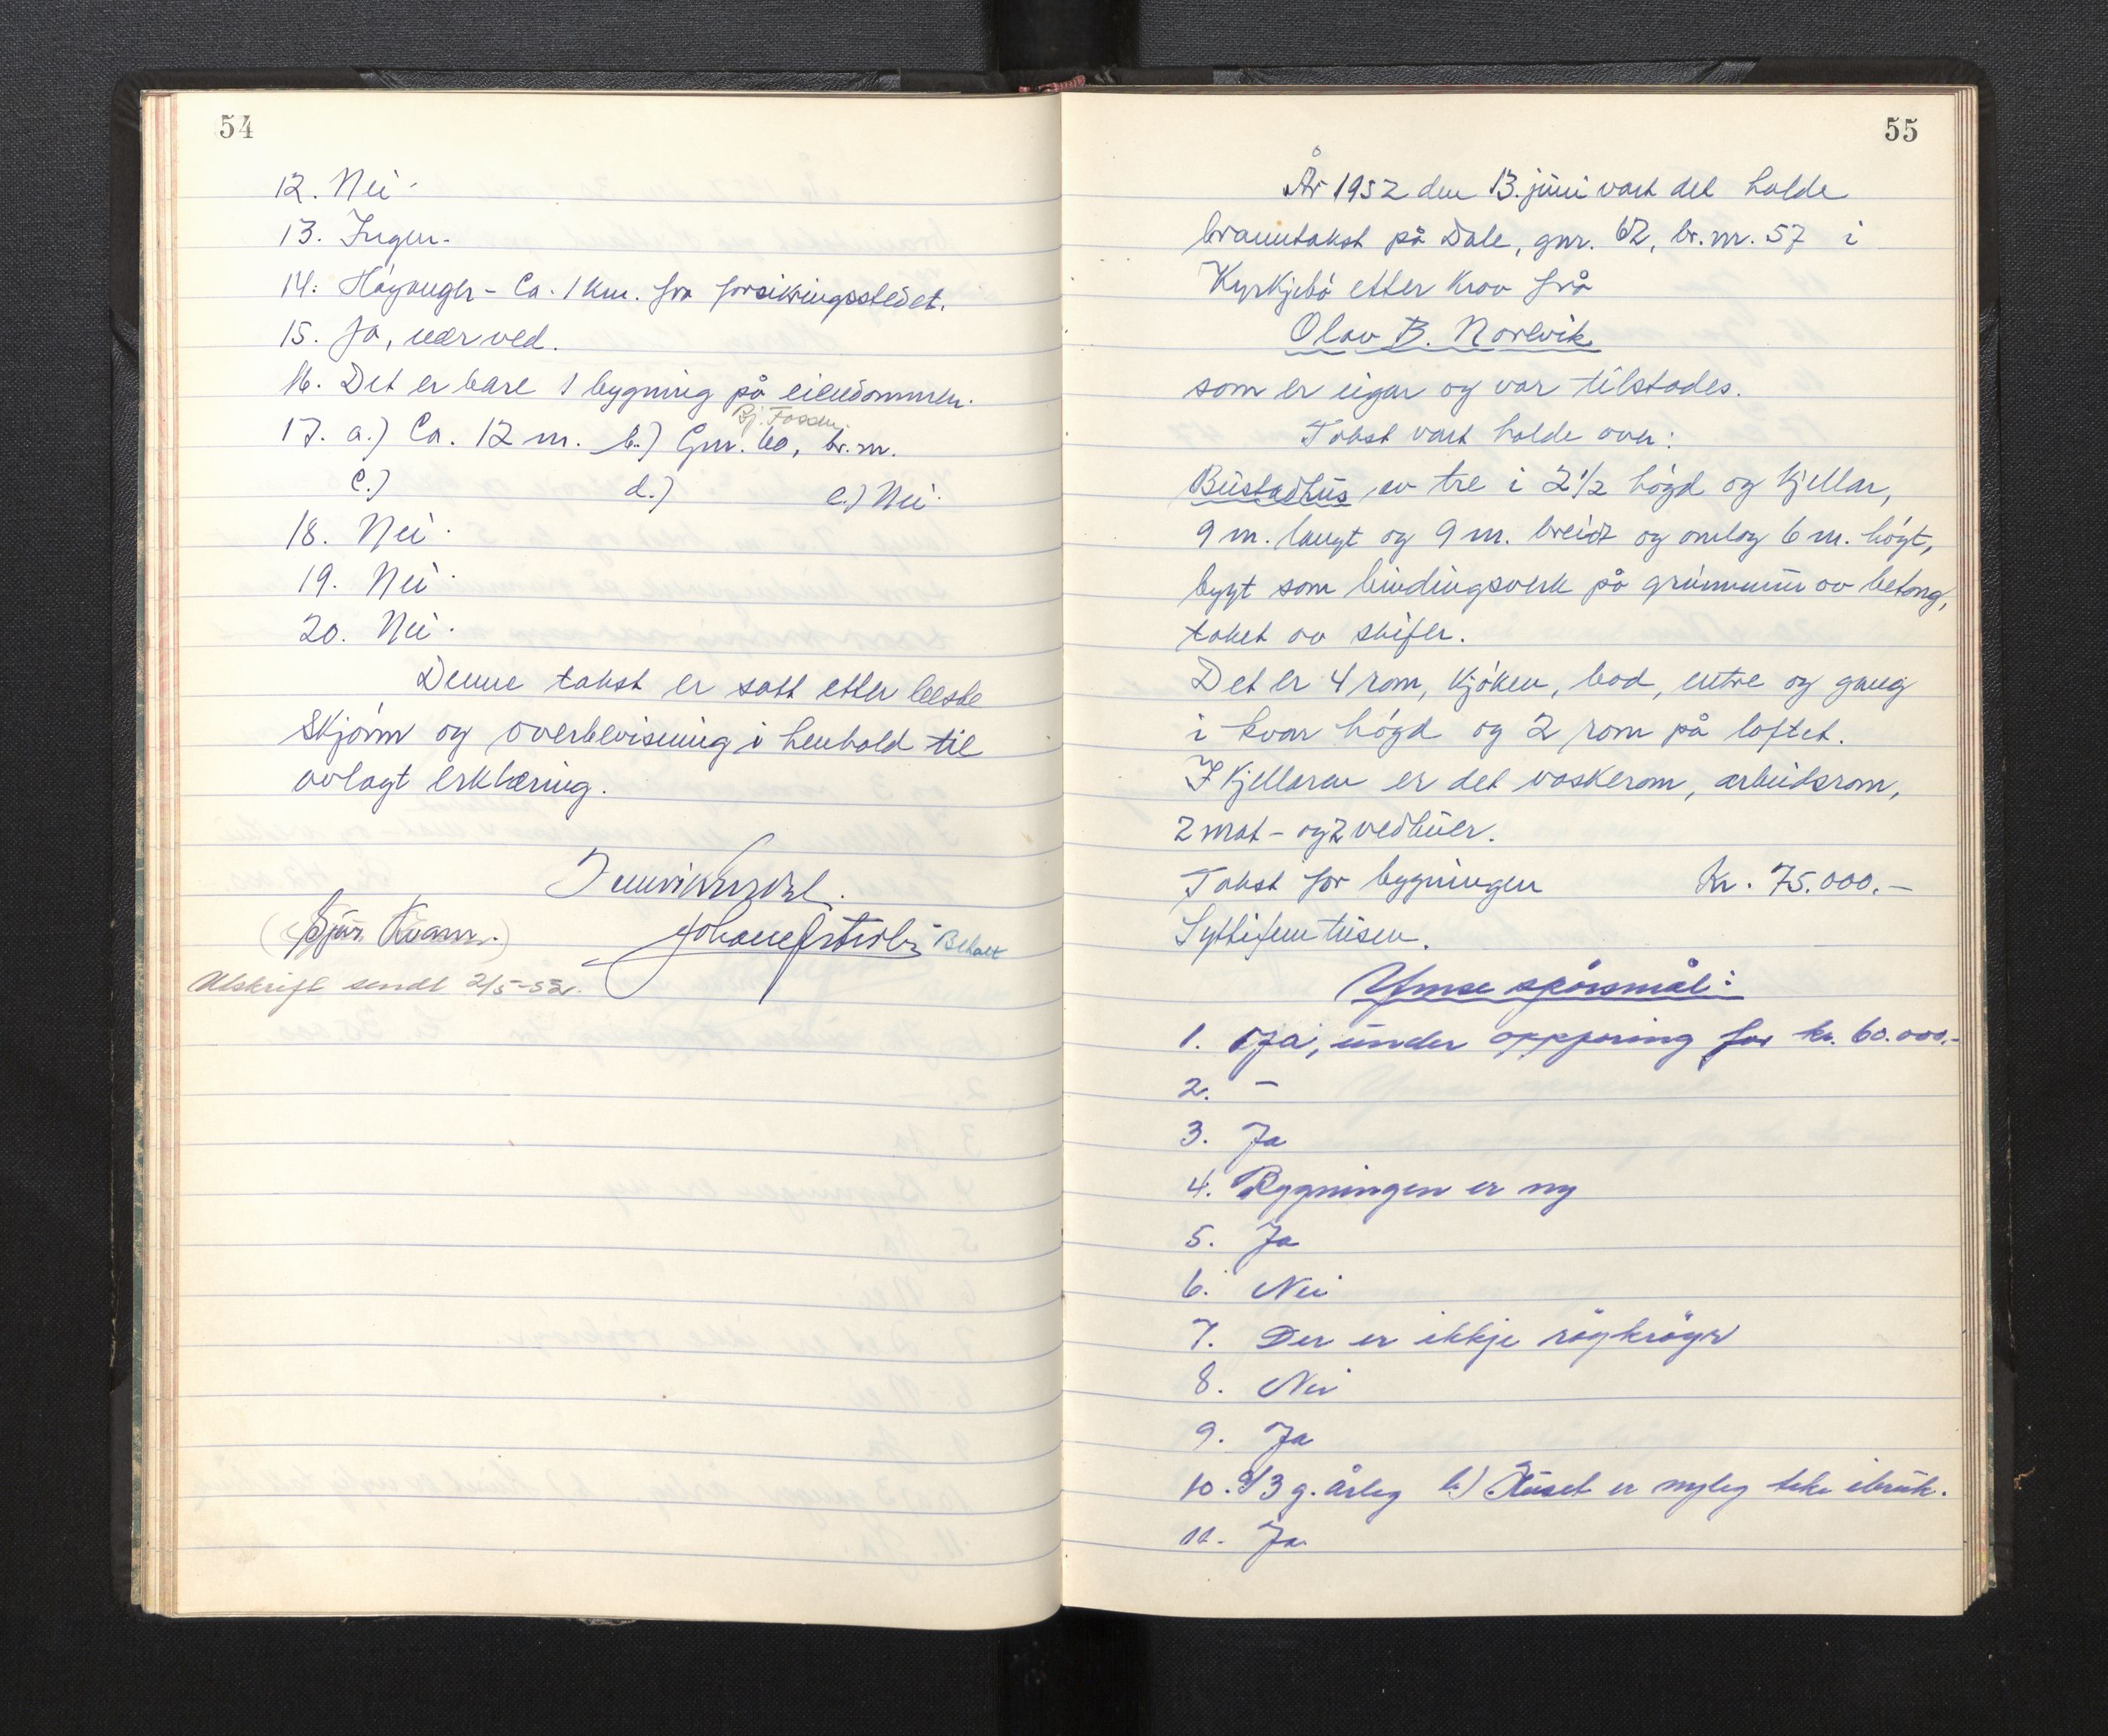 54
12. Nei.
13. Ingen.
14. Høyanger - Ca. 1 km. fra forsikringsstedet.
15. Ja, nær ved.
16. Det er bare 1 bygning på eiendommen.
Bj. Fossen.
17. a.) Ca. 12 m. b.) Gnr. 60, br.nr.
c.) d.) e.) Nei.
18. Nei.
19. Nei.
20. Nei.
Denne takst er satt etter beste
skjønn og overbevisning i henhold til
avlagt erklæring.
Kvam.)
Utskrift sendt 2/5-52.
55
År 1952 den 13. juni vart det halde
branntakst på Dale, gnr. 62, br.nr. 57 i
Kyrkjebø etter krav frå
Olav B. Norevik
som er eigar og var tilstades.
Takst vart halde over:
Bustadhus av tre i 2 1/2 høgd og kjellar,
9 m. langt og 9 m. breidt og omlag 6 m. høgt,
bygt som bindingsverk på grunnmur av betong,
taket av skifer.
Det er 4 rom, kjøken, bad, entre og gang
i kvar høgd og 2 rom på loftet.
I kjellaren er det vaskerom, arbeidsrom,
2 mat- og 2 vedbuer.
Takst for bygningen Kr. 75.000.-
Syttifem tusen.
Ymse spörsmål:
1. Ja, under oppföring for kr. 60.000.-
2. -
3. Ja
4. Bygningen er ny
5. Ja
6. Nei
7. Der er ikkje röykröyr
8. Nei
9. Ja
10. a) 3 g. årleg b.) Huset er nyleg teke ibruk.
11. Ja